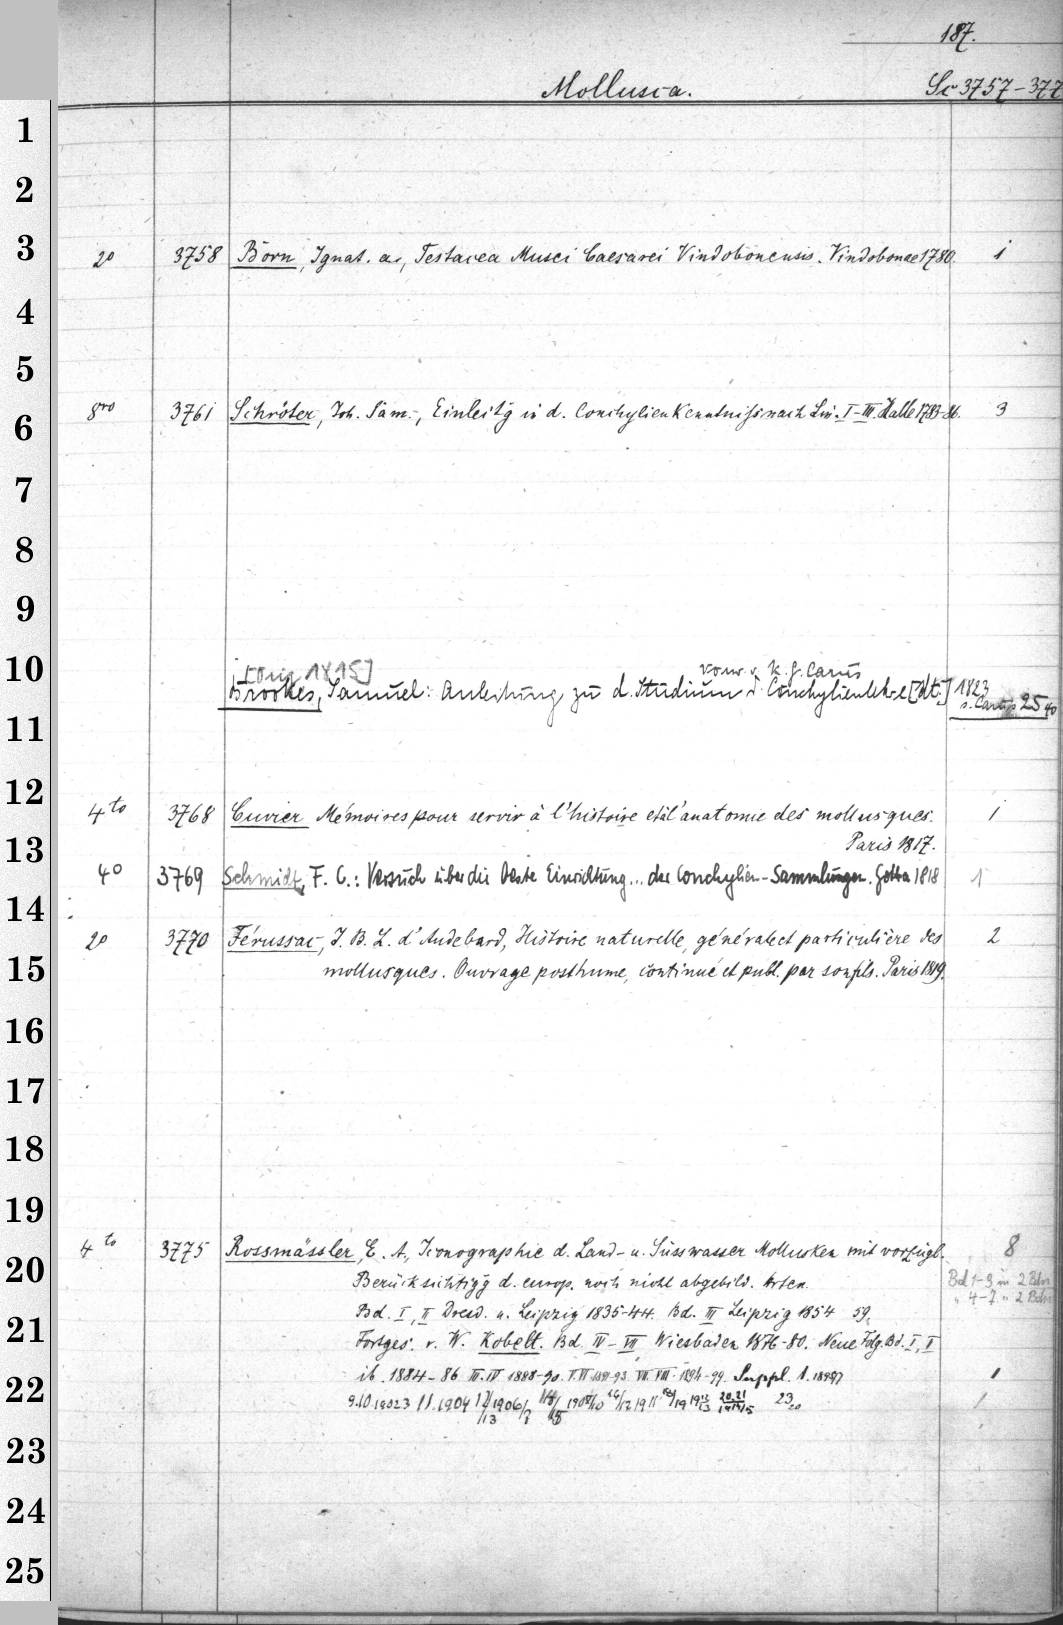 187.
Mollusca. Sc 3757-377
1
2
3 2° 3758 Born, Ignat. a., Testacea Musei Caesarei Vindobonensis. Vindobonae 1780. 1
4
5
6 8vo 3761 Schröter, Joh. Sam., Einleitg in d. Conchylien Kenntniss nach Lin. I-III. Halle 1783-86. 3
7
8
9
10 [Orig. 1815] vorw. v. K. G. Carus
Brookes, Samuel: Anleitung zu d. Studium d. Conchylienlehre [dt.] 1823
s. Carus 25 40
11
12 4to 3768 Cuvier Mémoires pour servir à l'histoire et à l'anatomie des mollusques. 1
13 Paris 1817.
4° 3769 Schmidt, F. C.: Versuch über die beste Einrichtung... der Conchylien-Sammlungen. Gotha 1818 1
14
2° 3770 Férussac, J. B. L. d'Audebard, Histoire naturelle, générale et particulière des 2
15 mollusques. Ouvrage posthume, continué et publ. par son fils. Paris 1819.
16
17
18
19
4to 3775 Rossmässler, E. A., Iconographie d. Land- u. Süsswasser Mollusken mit vorzügl. 8
20 Berücksichtigg d. europ. noch nicht abgebild. Arten. Bd 1-3 in 2 Bdn
Bd. I, II Dresd. u. Leipzig 1835-44. Bd. III Leipzig 1854 59. " 4-7 " 2 Bdn
21 Fortges. v. W. Kobelt. Bd. IV-VII Wiesbaden 1876-80. Neue Folg. Bd. I, II
22 ib. 1884-86. III. IV 1888-90. V. VI 1891-93. VII. VIII. 1894-99. Suppl. 1. 1897 1
9.10.1902 3 11.1904
23
24
25